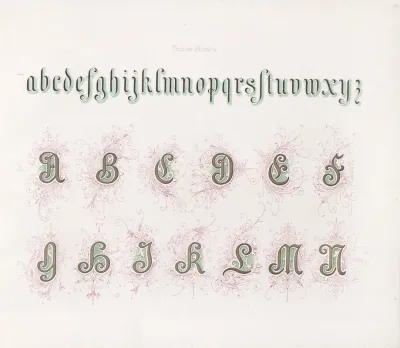 abcdefghijklmnopqrsſtuvwxyz
A B C D E F
G H J K L M N